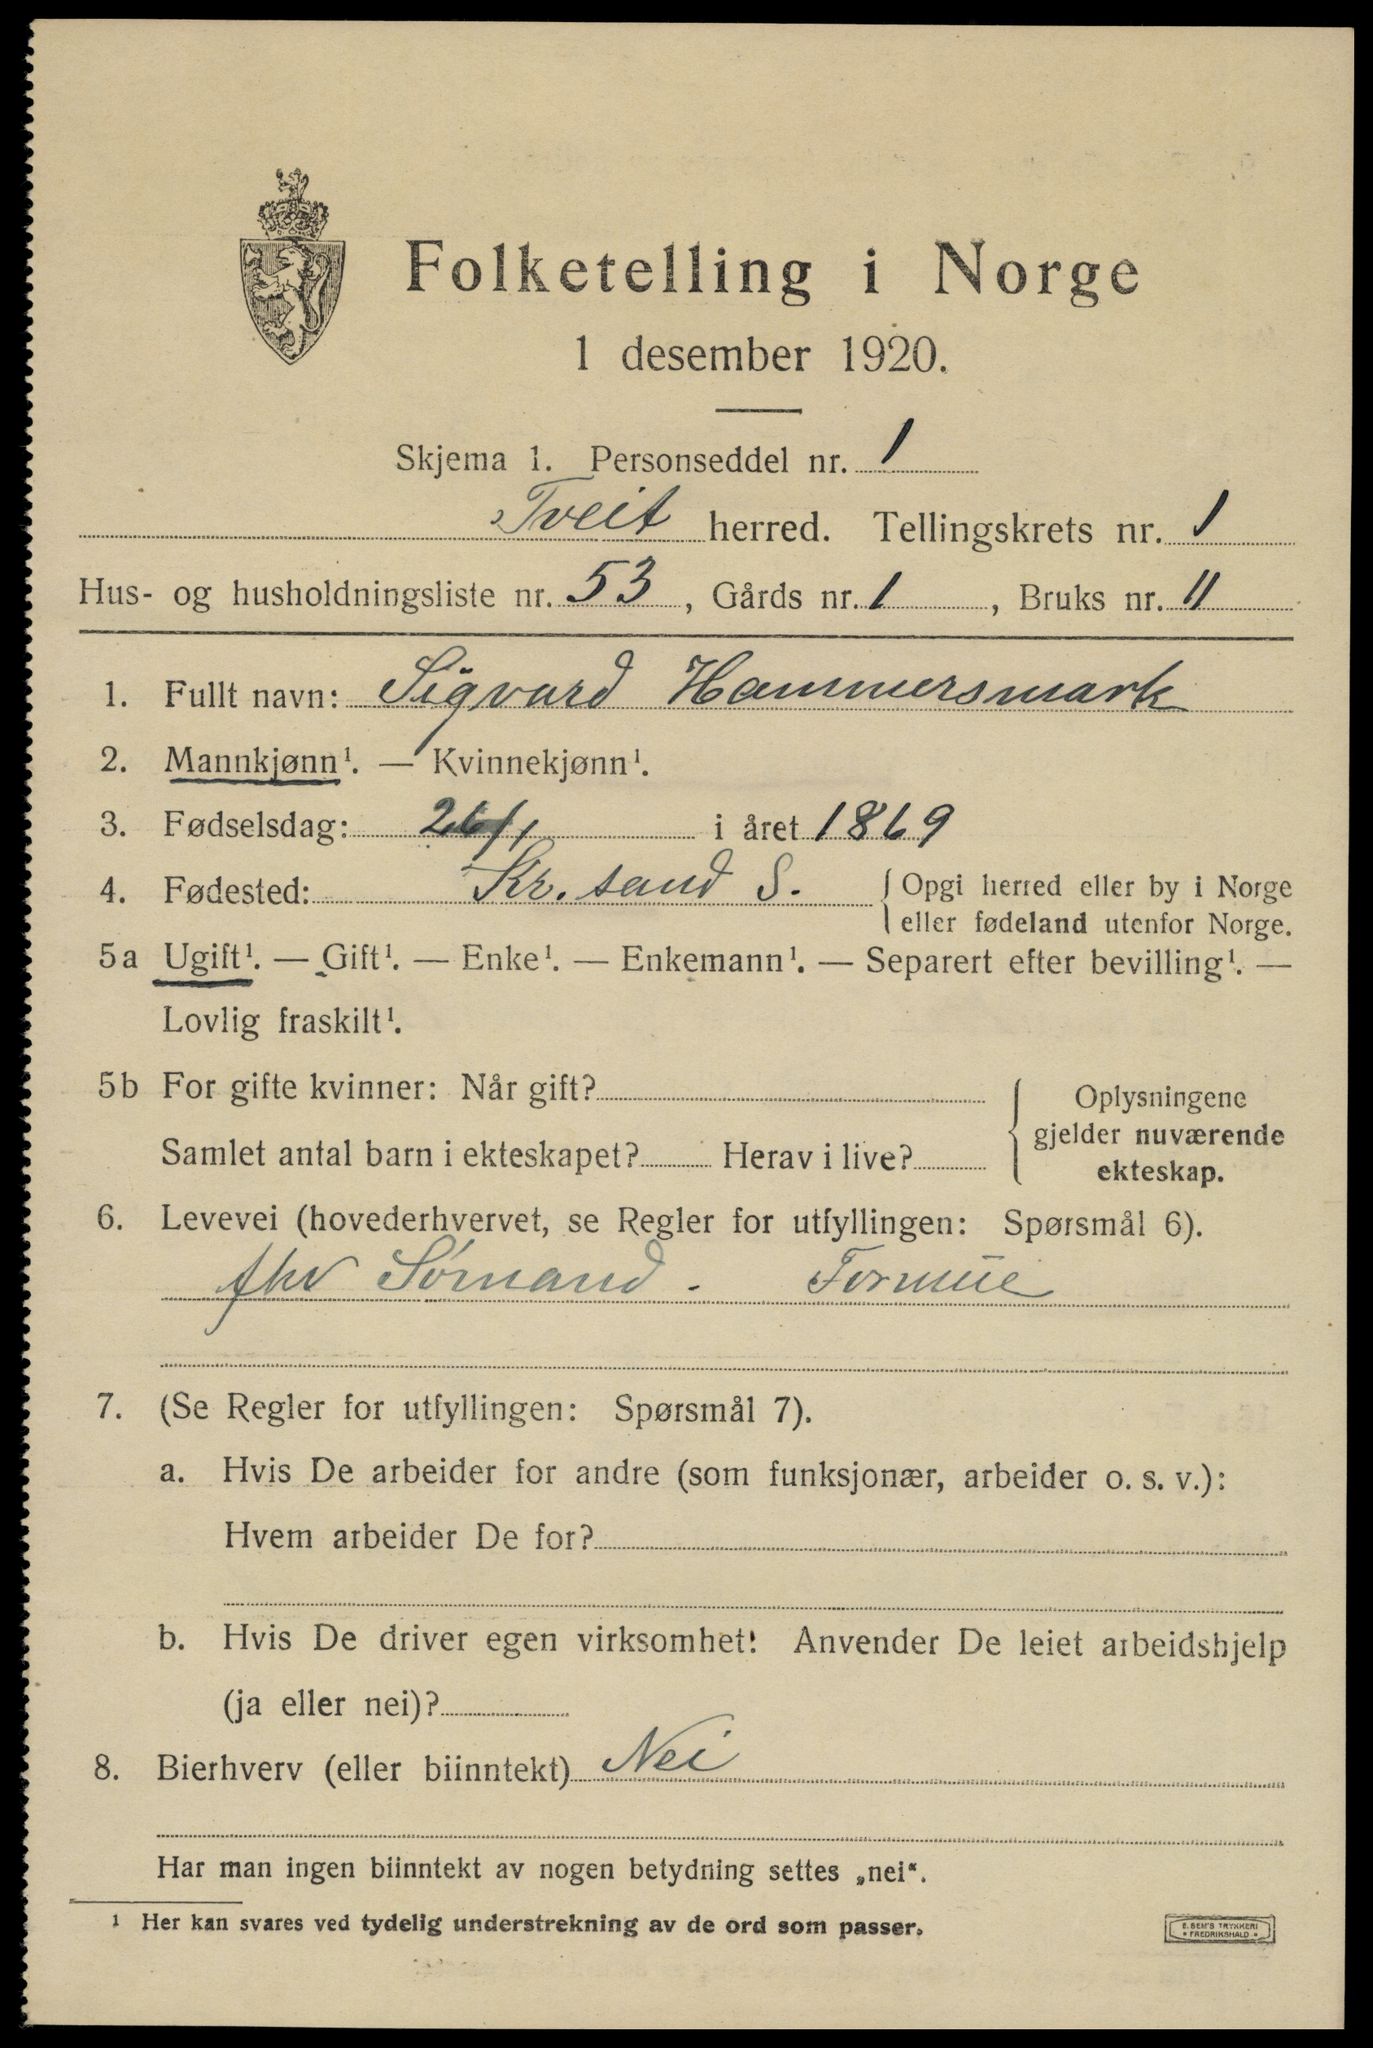 Folketelling i Norge
1 desember 1920.
Skjema 1. Personseddel nr. 1
Tveit herred. Tellingskrets nr. 1
Hus- og husholdningsliste nr. 53, Gårds nr. 1, Bruks nr. 11
1. Fullt navn: Sigvard Hammersmark
2. Mannkjønn¹. — Kvinnekjønn¹.
3. Fødselsdag: 26/1 i året 1869
4. Fødested: Kr.sand S. { Opgi herred eller by i Norge
eller fødeland utenfor Norge.
5a Ugift¹. — Gift¹. — Enke¹. — Enkemann¹. — Separert efter bevilling¹. —
Lovlig fraskilt¹.
5b For gifte kvinner: Når gift?
Samlet antal barn i ekteskapet? Herav i live?
{ Oplysningene
gjelder nuværende
ekteskap.
6. Levevei (hovederhvervet, se Regler for utfyllingen: Spørsmål 6).
fhv Sømand. Formue
7. (Se Regler for utfyllingen: Spørsmål 7).
a. Hvis De arbeider for andre (som funksjonær, arbeider o. s. v.):
Hvem arbeider De for?
b. Hvis De driver egen virksomhet: Anvender De leiet arbeidshjelp
(ja eller nei)?
8. Bierhverv (eller biinntekt) Nei
Har man ingen biinntekt av nogen betydning settes „nei“.
¹ Her kan svares ved tydelig understrekning av de ord som passer.
E. SEM'S TRYKKERI
FREDRIKSHALD